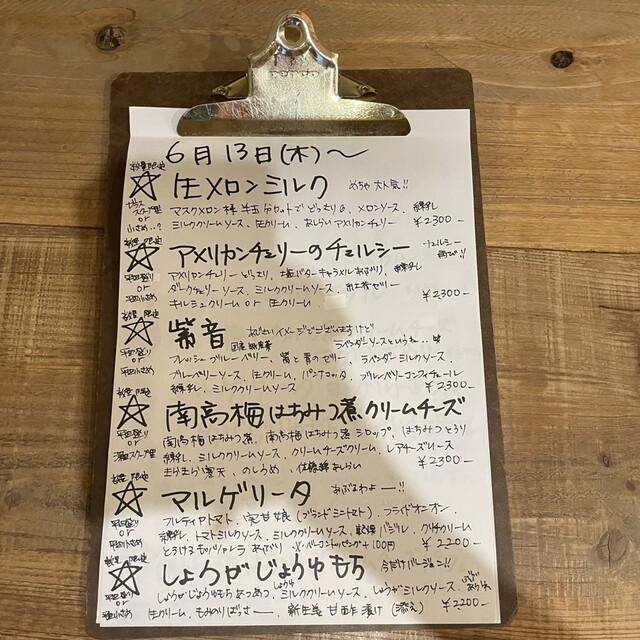 6月13日(木)〜
数量限定
生メロンミルク めちゃ大人気!!
マスクメロン 分カットでどっさりの、メロンソース、練乳
or
小さめ..?
ミルクミルクソース、生クリーム、あしらいアメリカンチェリー ¥2300-
数量限定
アメリカンチェリーのチェルシー チェルシー
アメリカンチェリーどっさり、塩バターキャラメルあぶり、練乳
平皿盛り
or
平皿小さめ
ダークチェリーソース、ミルククリームソース、ゼリー
キルシュクリーム or 生クリーム、 ¥2300-
数量限定
紫音
ラベンダーソースというね..
平皿盛り
or
平皿小さめ
フレッシュブルーベリー、 のゼリー、ラベンダーミルクソース、
ブルーベリーソース、生クリーム、パンナコッタ、ブルーベリーコンフィチュール
練乳、ミルククリームソース ¥2300-
数量限定
南高梅はちみつ煮クリームチーズ
南高梅はちみつ煮、南高梅はちみつ煮シロップ、はちみつとろり
平皿盛り
or
練乳、ミルククリームソース、クリームチーズクリーム、レアチーズソース
きらきら寒天、のしうめ、 あしらい ¥2300-
数量限定
マルゲリータ あぶるわよー!!
フルティカトマト、 甘娘(ブランドミニトマト)、フライドオニオン、
平皿盛り
or
平皿小さめ
練乳、トマトミルクソース、ミルククリームソース、乾燥バジル、クリチクリーム
とろけるモッツァレラあぶり ※ベーコントッピング+100円 ¥2200-
数量限定
しょうがじょうゆもち 今だけバージョン!!
しょうがじょうゆもちあつあつ、ミルククリームソース、しょうがミルクソース、
平皿盛り
or
平皿小さめ
生クリーム、もみのりばっさー、新生姜甘酢漬け(添え) ¥2200-